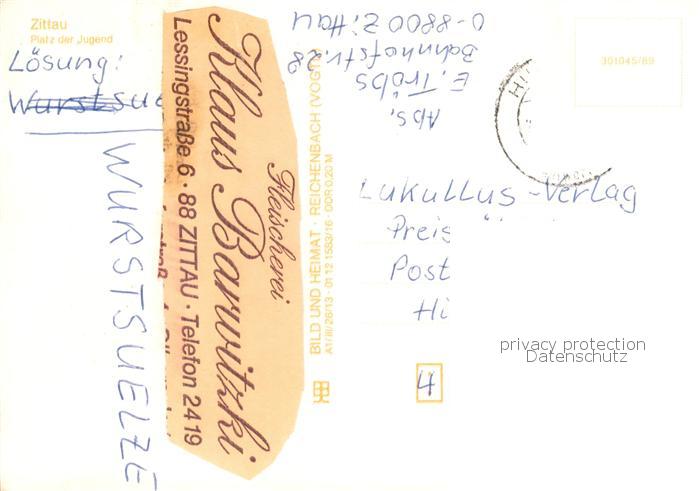 Zittau
Platz der Jugend
Lösung:
Wurstsue
WURSTSUELZE
Fleischerei
Klaus Barwitzki
Lessingstraße 6 · 88 ZITTAU · Telefon 2419
BILD UND HEIMAT · REICHENBACH (VOGTL)
A1/III/26/13 · 01 12 1583/16 · DDR 0,20 M
Abs.
E. Tröbs
Bahnhofstr. 28
O-8800 Zittau
301045/89
Lukullus-Verlag
Preis
Post
Hi
4
privacy protection
Datenschutz